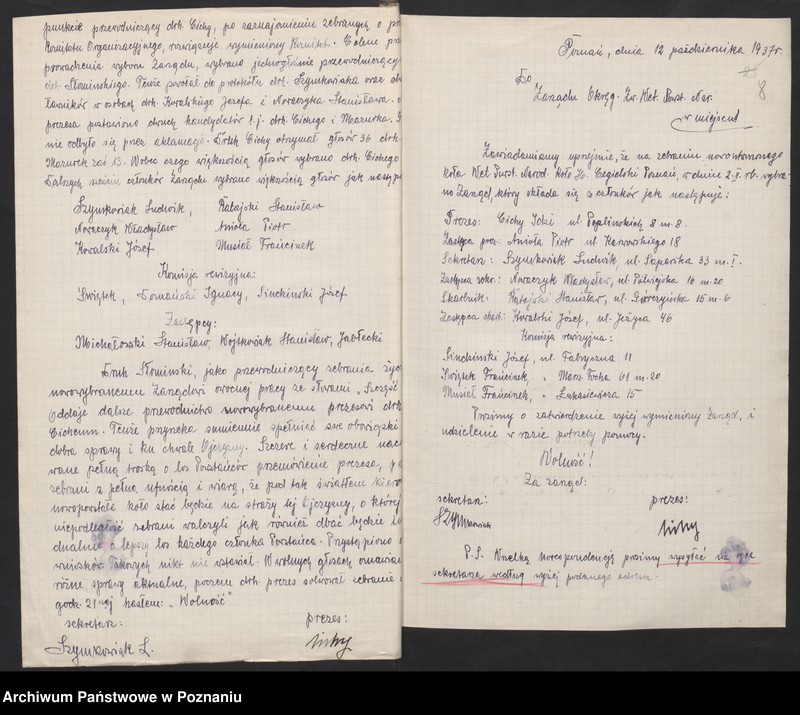 punkcie przewodniczący drh. Cichy, po zaznajomieniu zebranych o
Komitetu Organizacyjnego, rozwiązuje wymieniony Komitet. Celem
prowadzenia wyboru Zarządu, wybrano jednogłośnie przewodniczący
drh. Słomińskiego. Tenże powołał do protokółu drh. Szymkowiaka oraz
ławników w osobach drh. Kowalskiego Józefa i Nowaczyka Stanisława.
prezesa postawiono dwuch kandydatów t.j. drh. Cichego i Mazurka.
nie odbyło się przez aklamację. Druh Cichy otrzymał głosów 36 drh.
Mazurek zaś 13. Wobec czego większością głosów wybrano drh. Cichego
Dalszych sześciu członków Zarządu wybrano większością głosów jak
Szymkowiak Ludwik, Ratajski Stanisław
Nowaczyk Władysław Anioła Piotr
Kowalski Józef Musiał Franciszek
Komisja rewizyjna:
Świątek, Domański Ignacy, Siuchiński Józef
Zastępcy:
Michałowski Stanisław, Wojtkowiak Stanisław, Jabłecki
Druh Słomiński, jako przewodniczący zebrania
nowowybranemu Zarządowi owocnej pracy ze słowami „Szczęść
Oddaje dalsze przewodnictwo nowowybranemu prezesowi drh.
Cichemu. Tenże przyrzeka sumiennie spełniać swe obowiązki
dobra sprawy i ku chwale Ojczyzny. Szczere i serdeczne
wane pełną troską o los Powstańców przemówienie prezesa,
zebrani z pełną ufnością i wiarą, że pod tak światłem
nowopowstałe koło stać będzie na straży tej Ojczyzny, o której
niepodległość zebrani walczyli jak również dbać będzie
o lepszy los każdego członka Powstańca. Przystąpiono
wniosków takowych nikt nie wstawiał. W wolnych głosach
różne sprawy aktualne, poczem drh. prezes solwował zebranie
godz. 21-ej hasłem: „Wolność"
sekretarz: prezes:
Szymkowiak L. Cichy
Poznań, dnia 12 października 1937r.
8
Do
Zarządu Okręg. Zw. Wet. Powst. Nar.
w miejscu
Zawiadamiamy uprzejmie, że na zebraniu nowoutworzonego
koła Wet. Powst. Narod. koło H. Cegielski Poznań, w dniu 2.X. rb. wybra-
no Zarząd, który składa się z członków jak następuje:
Prezes: Cichy ul. Poplińskich 8 m. 8.
Zastępca prez: Anioła Piotr ul. 18
Sekretarz: Szymkowiak Ludwik, ul. Saperska 33 m. I.
Zastępca sekr.: Nowaczyk Władysław, ul. Półwiejska 16 m. 20
Skarbnik: Ratajski Stanisław, ul. Górczyńska 15 m. 6
Zastępca skarb: Kowalski Józef, ul. Jeżyca 46
Komisja rewizyjna:
Siuchiński Józef, ul. Fabryczna 11
Świątek Franciszek, „ Marsz. Focha 61 m. 20
Musiał Franciszek, „ Łukasiewicza 15
Prosimy o zatwierdzenie wyżej wymieniony Zarząd, i
udzielenie w razie potrzeby pomocy.
Wolność!
Za zarząd:
sekretarz: prezes:
Szymkowiak Cichy
P.S. Wszelką korespondencję prosimy wysyłać na ręce
sekretarza według wyżej podanego adresu.
Archiwum Państwowe w Poznaniu